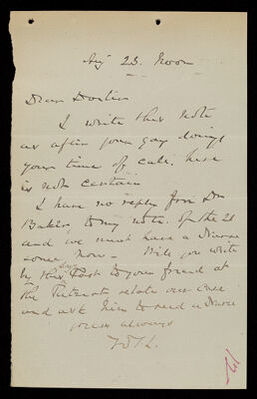 Aug 23. Noon
Dear Doctor
I write this note
as after your gay doings
your time of call here
is not certain
I have no reply from Dr
Baker to my note of the 21
and we must have a Nurse
some now - Will you write
by this post to your friend at
the relate our case
and ask him to send a Nurse
yours always